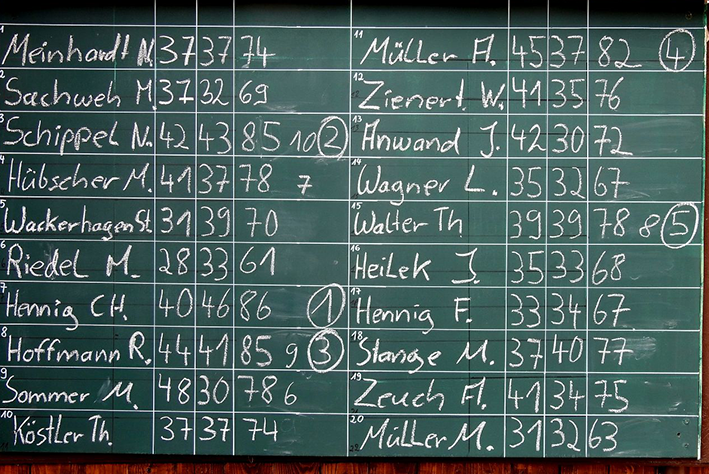 1 Meinhardt N. 37 37 74
2 Sachweh M. 37 32 69
3 Schippel N. 42 43 85 10 2
4 Hübscher M. 41 37 78 7
5 Wackerhagen St. 31 39 70
6 Riedel M. 28 33 61
7 Hennig CH. 40 46 86 1
8 Hoffmann R. 44 41 85 9 3
9 Sommer M. 48 30 78 6
10 Köstler Th. 37 37 74
11 Müller A. 45 37 82 4
12 Zienert W. 41 35 76
13 Anwand J. 42 30 72
14 Wagner L. 35 32 67
15 Walter Th 39 39 78 8 5
16 Heilek J. 35 33 68
17 Hennig F. 33 34 67
18 Stange M. 37 40 77
19 Zeuch A. 41 34 75
20 Müller M. 31 32 63